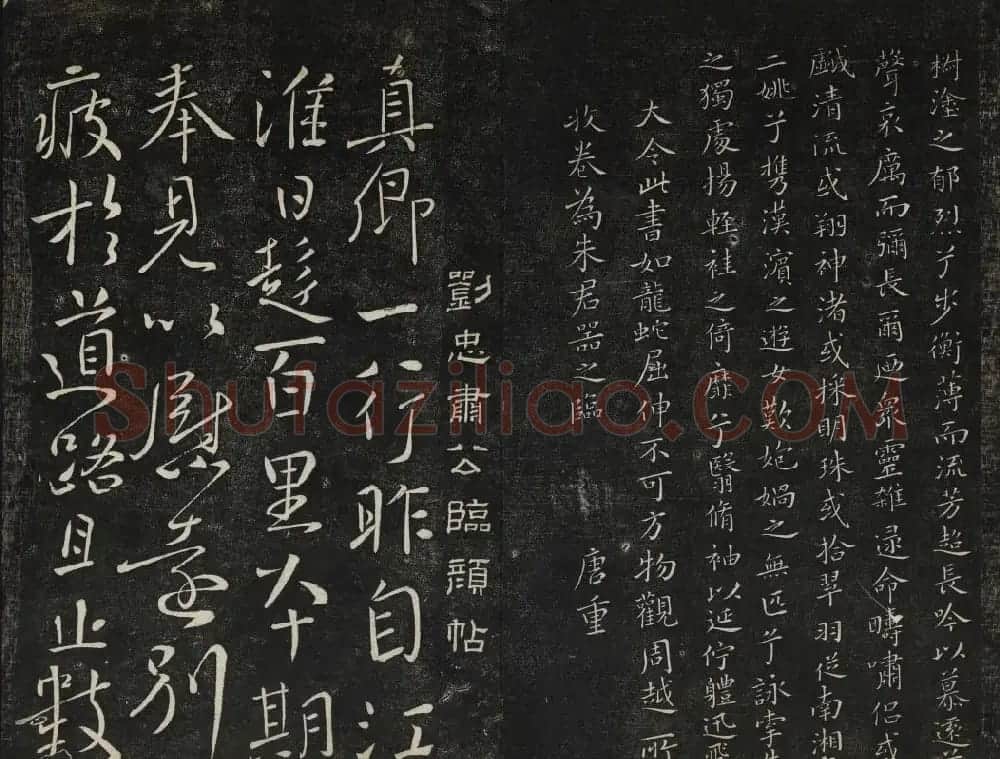 樹塗之郁烈兮步衡薄而流芳超長吟以慕遠兮
聲哀厲而彌長爾迺衆靈雜遝命疇嘯侣或
戲清流或翔神渚或採明珠或拾翠羽從南湘
二姚兮攜漢濱之遊女歎匏媧之無匹兮詠牽牛
之獨處揚輕袿之倚靡兮翳脩袖以延佇體迅飛
大令此書如龍蛇屈伸不可方物觀周越所
收卷為朱君器之臨
唐重
劉忠肅公臨顔帖
真卿一行昨自江
淮日趍一百里六十期
奉見以慰遠别
疲於道路且止數
Shufaziliao.COM